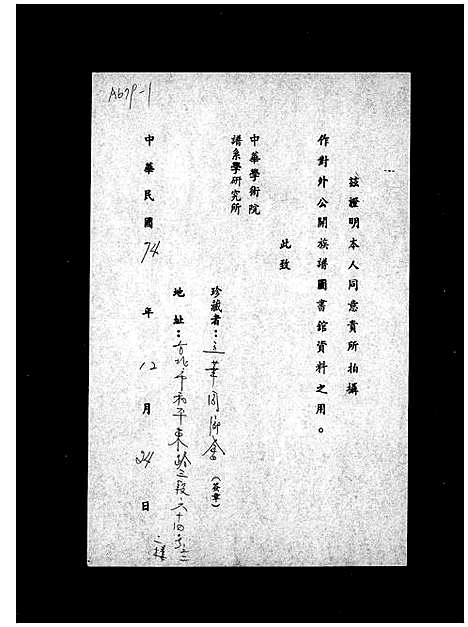 A679-1
茲證明本人同意貴所拍攝
作對外公開族譜圖書館資料之用。
此致
中華學術院
譜系學研究所
珍藏者：(簽章)
地址：台北市和平東路三段六十四
二樓
中華民國74年12月24日